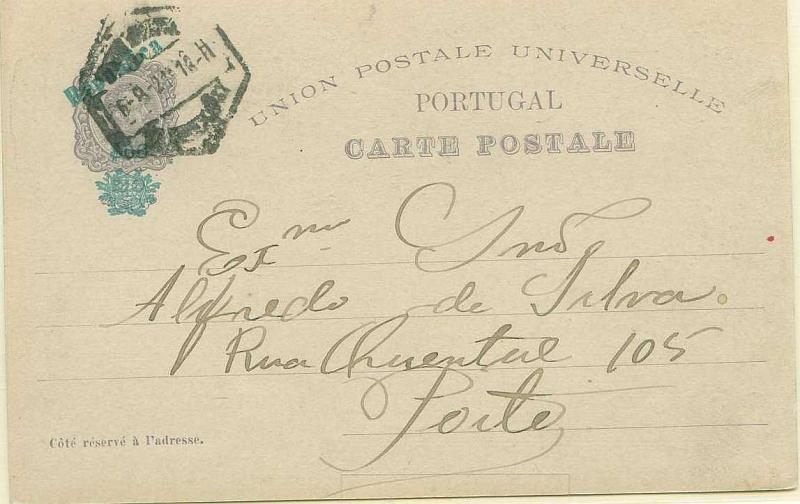 UNION POSTALE UNIVERSELLE
PORTUGAL
CARTE POSTALE
Exmo Snr
Alfredo da Silva.
Rua Quental 105
Porto
Côté réservé à l'adresse.